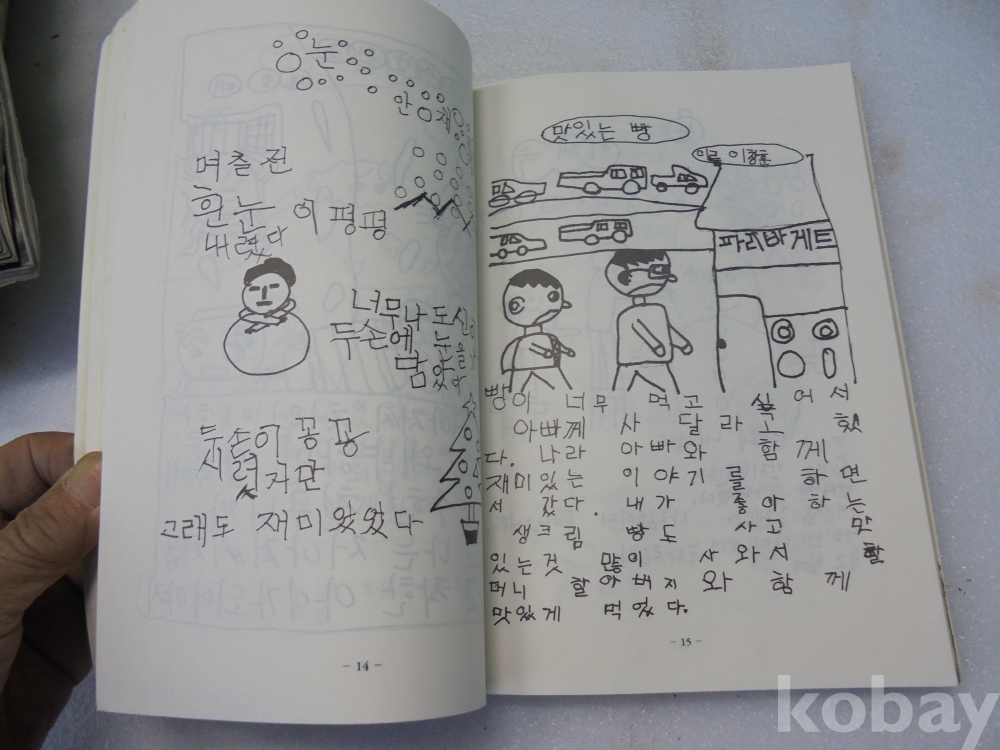 눈
며츨전
흰눈 이 펑펑
내렸다
너무나 도
두손에 눈을
담았다
두손이 꽁꽁
그래도 재미있었다
- 14 -
맛있는 빵
이름
파리바게트
빵이 너무 먹고 싶어서
아빠께 사달라고 했
다. 나라 아빠와 함께
재미있는 이야기를 하면
서 갔다. 내가 좋아하는
생크림 빵도 사고 맛
있는것 많이 사와서 할
머니 할아버지와 함께
맛있게 먹었다.
- 15 -
kobay